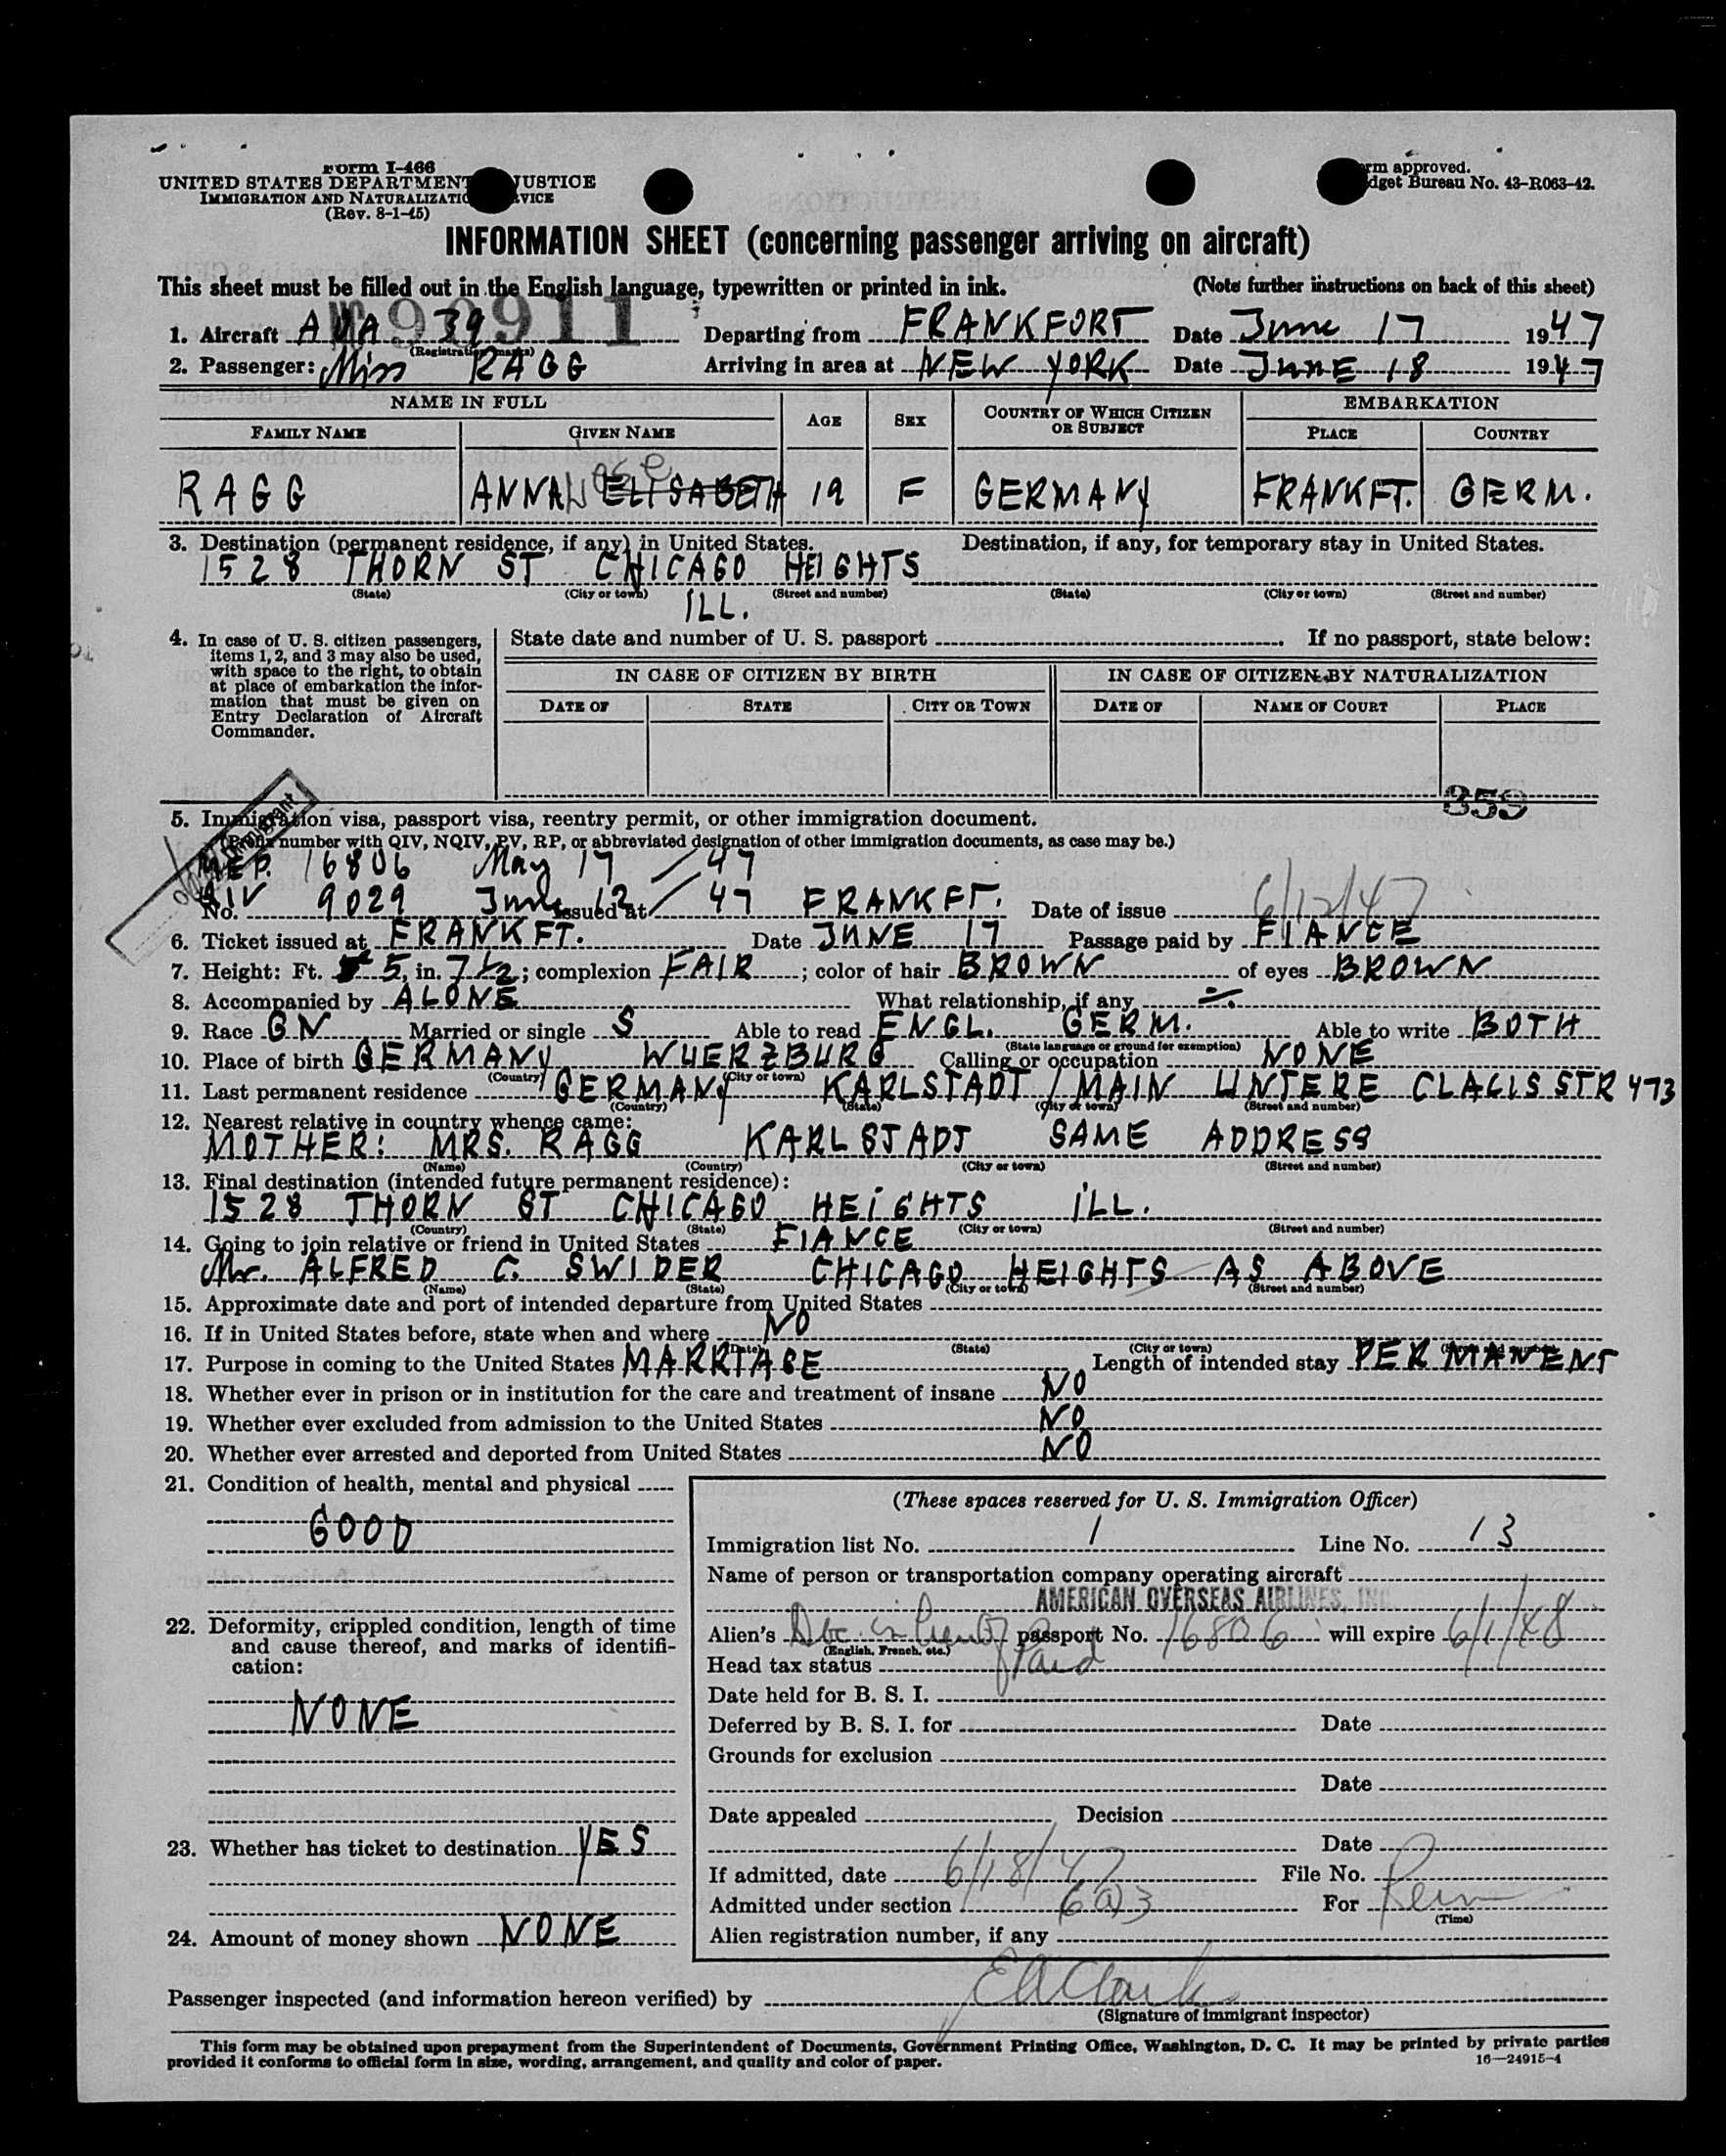 Form I-466
UNITED STATES DEPARTMENT JUSTICE
IMMIGRATION AND NATURALIZATIO VICE
(Rev. 8-1-45)
rm approved.
dget Bureau No. 43-R063-42.
INFORMATION SHEET (concerning passenger arriving on aircraft)
This sheet must be filled out in the English language, typewritten or printed in ink. (Note further instructions on back of this sheet)
1. Aircraft AOA 39 Departing from FRANKFORT Date June 17 1947
(Registration marks)
2. Passenger: Miss RAGG Arriving in area at NEW YORK Date JUNE 18 1947
NAME IN FULL AGE SEX COUNTRY OF WHICH CITIZEN OR SUBJECT EMBARKATION
FAMILY NAME GIVEN NAME PLACE COUNTRY
RAGG ANNA ELISABETH 19 F GERMANY FRANKFT. GERM.
3. Destination (permanent residence, if any) in United States. Destination, if any, for temporary stay in United States.
1528 THORN ST CHICAGO HEIGHTS
(State) (City or town) (Street and number) (State) (City or town) (Street and number)
ILL.
4. In case of U. S. citizen passengers, items 1, 2, and 3 may also be used, with space to the right, to obtain at place of embarkation the information that must be given on Entry Declaration of Aircraft Commander.
State date and number of U. S. passport If no passport, state below:
IN CASE OF CITIZEN BY BIRTH IN CASE OF CITIZEN BY NATURALIZATION
DATE OF STATE CITY OR TOWN DATE OF NAME OF COURT PLACE
359
5. Immigration visa, passport visa, reentry permit, or other immigration document.
(Prefix number with QIV, NQIV, PV, RP, or abbreviated designation of other immigration documents, as case may be.)
16806 May 17 / 47
No. 9029 June 12 / 47 Issued at FRANKFT. Date of issue 6/12/47
6. Ticket issued at FRANKFT. Date JUNE 17 Passage paid by FIANCE
7. Height: Ft. 5, in. 7 1/2; complexion FAIR; color of hair BROWN of eyes BROWN
8. Accompanied by ALONE What relationship, if any
9. Race GN Married or single S Able to read ENGL. GERM. Able to write BOTH
(State language or ground for exemption)
10. Place of birth GERMANY WUERZBURG Calling or occupation NONE
(Country) (City or town)
11. Last permanent residence GERMANY KARLSTADT / MAIN UNTERE CLACIS STR 473
(Country) (State) (City or town) (Street and number)
12. Nearest relative in country whence came:
MOTHER: MRS. RAGG KARLSTADT SAME ADDRESS
(Name) (Country) (City or town) (Street and number)
13. Final destination (intended future permanent residence):
1528 THORN ST CHICAGO HEIGHTS ILL.
(Country) (State) (City or town) (Street and number)
14. Going to join relative or friend in United States FIANCE
Mr. ALFRED C. SWIDER CHICAGO HEIGHTS AS ABOVE
(Name) (State) (City or town) (Street and number)
15. Approximate date and port of intended departure from United States
16. If in United States before, state when and where NO
(Date) (State) (City or town) (Street and number)
17. Purpose in coming to the United States MARRIAGE Length of intended stay PERMANENT
18. Whether ever in prison or in institution for the care and treatment of insane NO
19. Whether ever excluded from admission to the United States NO
20. Whether ever arrested and deported from United States NO
21. Condition of health, mental and physical
GOOD
22. Deformity, crippled condition, length of time and cause thereof, and marks of identification:
NONE
23. Whether has ticket to destination YES
24. Amount of money shown NONE
(These spaces reserved for U. S. Immigration Officer)
Immigration list No. 1 Line No. 13
Name of person or transportation company operating aircraft
AMERICAN OVERSEAS AIRLINES, INC.
Alien's passport No. 16806 will expire 6/1/48
(English, French, etc.)
Head tax status Paid
Date held for B. S. I.
Deferred by B. S. I. for Date
Grounds for exclusion
Date
Date appealed Decision
Date
If admitted, date 6/18/47 File No.
Admitted under section 6(a)3 For Perm
(Time)
Alien registration number, if any
Passenger inspected (and information hereon verified) by EAClark
(Signature of immigrant inspector)
This form may be obtained upon prepayment from the Superintendent of Documents, Government Printing Office, Washington, D. C. It may be printed by private parties
provided it conforms to official form in size, wording, arrangement, and quality and color of paper. 16—24915-4